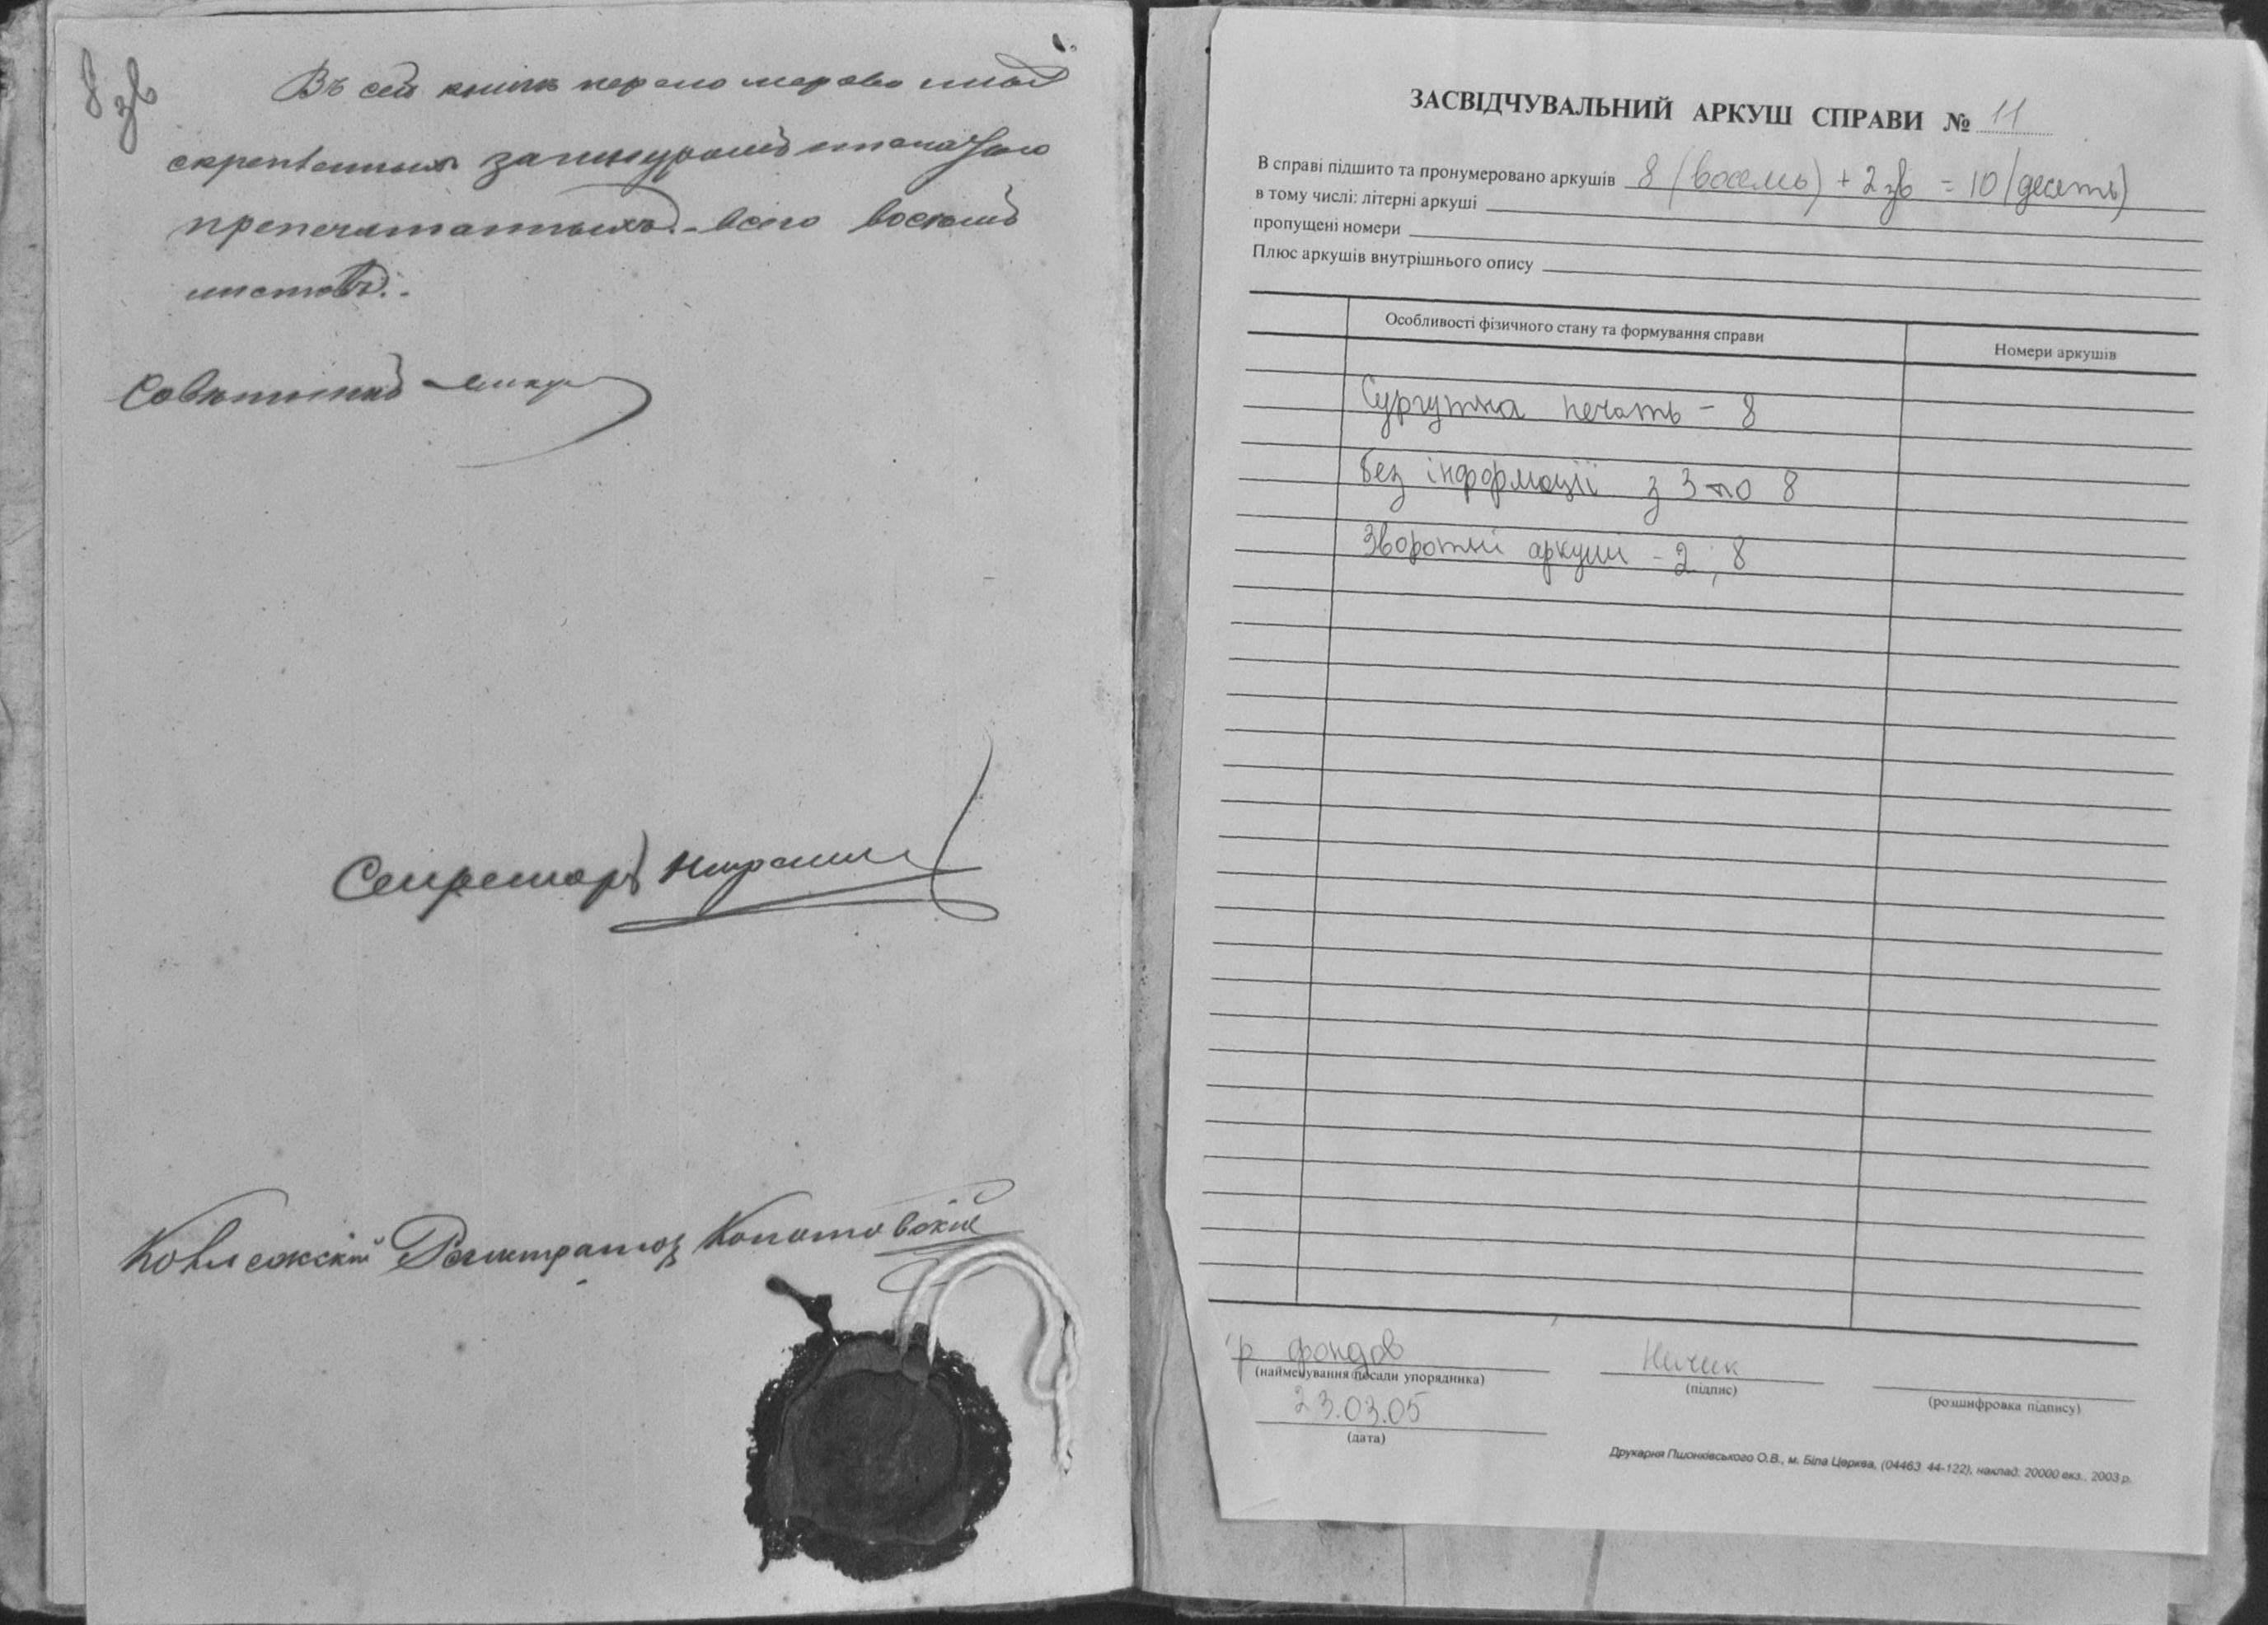 8
зв
Въ сей книгѣ перенумерованныхъ
скрепленныхъ зашнурованныхъ
припечатанныхъ всего восемь
листовъ.
Совѣтникъ
Секретарь
Коллежскій Регистраторъ
ЗАСВІДЧУВАЛЬНИЙ АРКУШ СПРАВИ № 11
В справі підшито та пронумеровано аркушів 8 (восемь) + 2 зв = 10 (десять)
в тому числі: літерні аркуші
пропущені номери
Плюс аркушів внутрішнього опису
Особливості фізичного стану та формування справи
Номери аркушів
Сургутна печать - 8
Без інформації з 3 по 8
Зворотні аркуші - 2, 8
фондов
(найменування посади упорядника)
Ничик
(підпис)
(розшифровка підпису)
23.03.05
(дата)
Друкарня Пшонківського О.В., м. Біла Церква, (04463 44-122), наклад. 20000 екз., 2003 р.